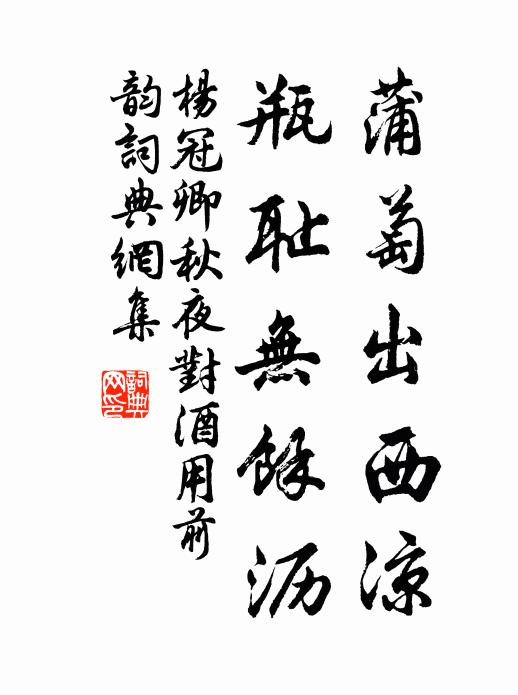 蒲萄出西涼
瓶耻無餘沥
楊冠卿秋夜對酒用前
韵詞典網集
詞典
网印